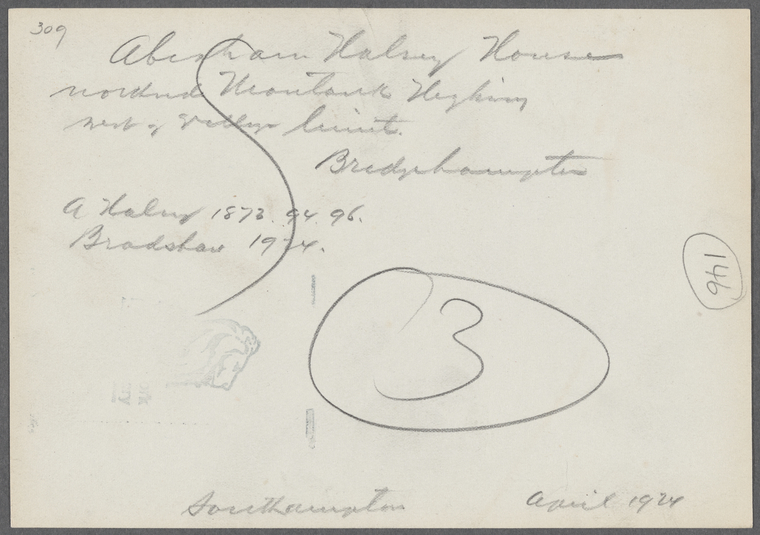 309
Abraham Halsey House
Montauk Highway
west of limit.
Bridgehampton
A Halsey 1873. 94 96.
Bradshaw 1924.
146
3
Southampton
April 1924